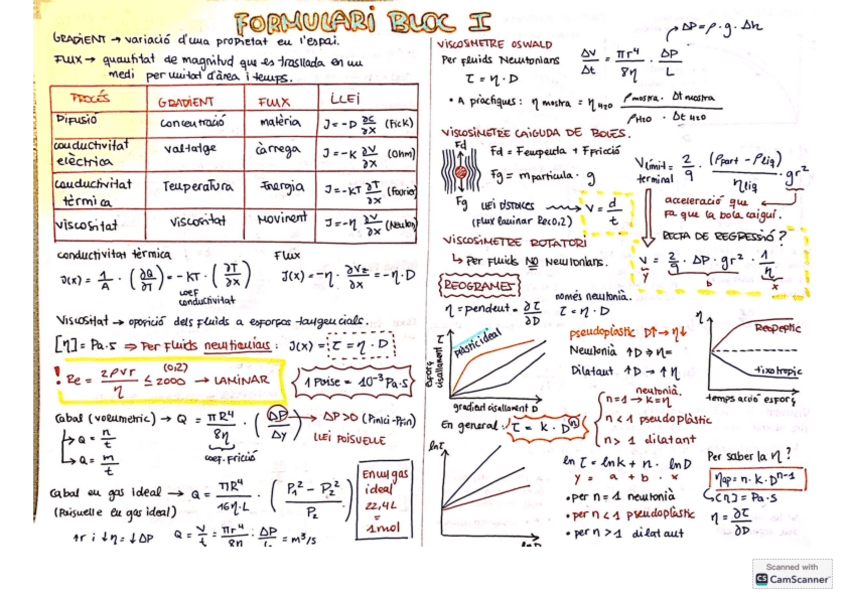 FORMULARI BLOC I
GRADIENT → variació d'una propietat en l'espai.
FLUX → quantitat de magnitud que es trasllada en un
medi per unitat d'àrea i temps.
PROCÉS GRADIENT FLUX LLEI
Difusió concentració matèria J = -D ∂C/∂x (Fick)
conductivitat elèctrica valtatge càrrega J = -K ∂V/∂x (Ohm)
conductivitat tèrmica Temperatura Energia J = -KT ∂T/∂x (Fourier)
viscositat viscositat Moviment J = -η ∂V/∂x (Newton)
conductivitat tèrmica
J(x) = 1/A · (∂Q/∂T) = -KT · (∂T/∂x)
coef conductivitat
Flux
J(x) = -η · ∂Vz/∂x = -η · D
Viscositat → oposició dels fluids a esforços tangencials.
[η] = Pa·s ⇒ Per Fluids newtonians: J(x) = τ = η · D
! Re = 2ρvr/η ≤ 2000 (0,2) → LAMINAR
1 Poise = 10⁻³ Pa·s
Cabal (volumetric) → Q = πR⁴/8η · (ΔP/Δy) → ΔP>0 (Pinici-Pfin)
↳ Q = n/t
↳ Q = m/t
coef. fricció
LLEI POISUELLE
Cabal en gas ideal → Q = πR⁴/16η·L · (P₁² - P₂²/P₂)
(Poisuelle en gas ideal)
En un gas
ideal
22,4L
=
1mol
↑r i ↓η = ↓ΔP Q = V/t = πr⁴/8η · ΔP/L = m³/s
ΔP = ρ · g · Δh
VISCOSIMETRE OSWALD
Per Fluids Newtonians
τ = η · D
ΔV/Δt = πr⁴/8η · ΔP/L
• A pràctiques: η mostra = η H₂O ρmostra · Δt mostra / ρH₂O · Δt H₂O
VISCOSÍMETRE CAIGUDA DE BOLES.
Fd
Fd = Fempenta + Ffricció
Fg = mpartícula · g
Fg
LLEI D'STOKES → V = d/t
(Flux laminar Re<0,2)
Vlímit terminal = 2/9 · (ρpart - ρliq)/ηliq · gr²
acceleració que
fa que la bola caigui.
VISCOSIMETRE ROTATORI
↳ Per Fluids NO Newtonians.
RECTA DE REGRESSIÓ?
V = 2/9 · ΔP · gr² · 1/η
y b x
REOGRAMES
η = pendent = ∂τ/∂D
només newtonià.
τ = η · D
τ
esforç cisallament
plàstic ideal
gradient cisallament D
pseudoplàstic D↑ → η↓
Newtonià ↑D → η=
Dilatant ↑D → ↑η
η
Reopeptic
tixotropic
temps acció esforç
En general: τ = K · Dⁿ
neutonià.
n=1 → K=η
n<1 pseudoplàstic
n>1 dilatant
lnτ
lnD
ln τ = lnk + n · lnD
y = a + b · x
• per n = 1 neutonià
• per n < 1 pseudoplàstic
• per n > 1 dilatant
Per saber la η?
ηap = n · K · Dⁿ⁻¹
↳ [η] = Pa·s
η = ∂τ/∂D
Scanned with
CS CamScanner